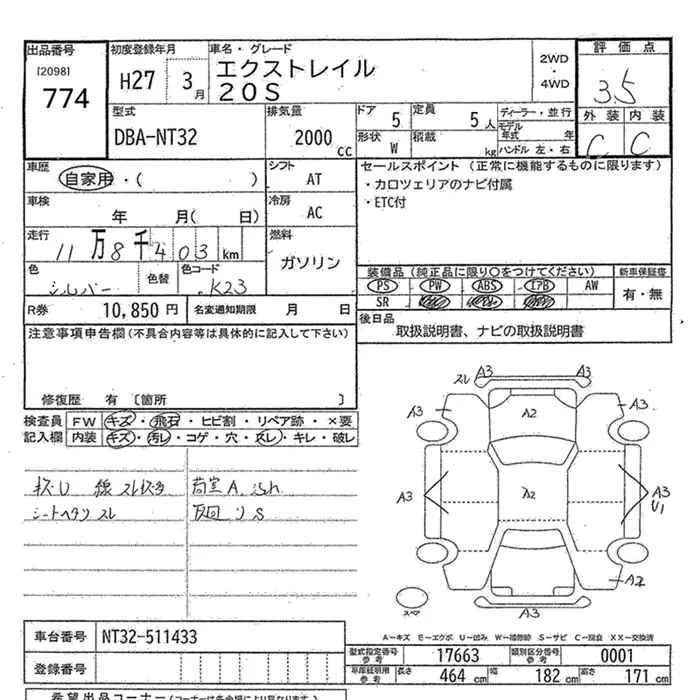 出品番号 初度登録年月 車名・グレード 2WD・4WD 評価点
[2098] 774 H27 3月 エクストレイル 20S 3.5
外装 内装
C C
型式 排気量 ドア 5 定員 5人 ディーラー・並行
DBA-NT32 2000cc 形状 W 積載 kg モデル年式 年
ハンドル 左・右
車歴 シフト セールスポイント (正常に機能するものに限ります)
自家用・( ) AT ・カロツェリアのナビ付属
車検 冷房 ・ETC付
年 月( 日) AC
走行 燃料
11万8千403km ガソリン
色 色替 色コード 装備品 (純正品に限り○をつけてください) 新車保証書
シルバー K23 PS PW ABS エアB AW 有・無
SR
R券 10,850円 名変通知期限 月 日 後日品
取扱説明書、ナビの取扱説明書
注意事項申告欄 (不具合内容等は具体的に記入して下さい)
修復歴 有 〔箇所 〕
検査員 FW キズ・飛石・ヒビ割・リペア跡・×要
記入欄 内装 キズ・汚レ・コゲ・穴・スレ・キレ・破レ
スレ A3 A3
A3 A3
A2
A3 A2 A3
U1
A2
スペア A3
荷室A
シートヘタリ スレ
車台番号 NT32-511433
登録番号
A-キズ E-エクボ U-凹み W-補修跡 S-サビ C-腐食 XX-交換済
型式指定番号 参考 17663 類別区分番号 参考 0001
車庫証明用 参考 長さ 464 cm 幅 182 cm 高さ 171 cm
希望出品コーナー